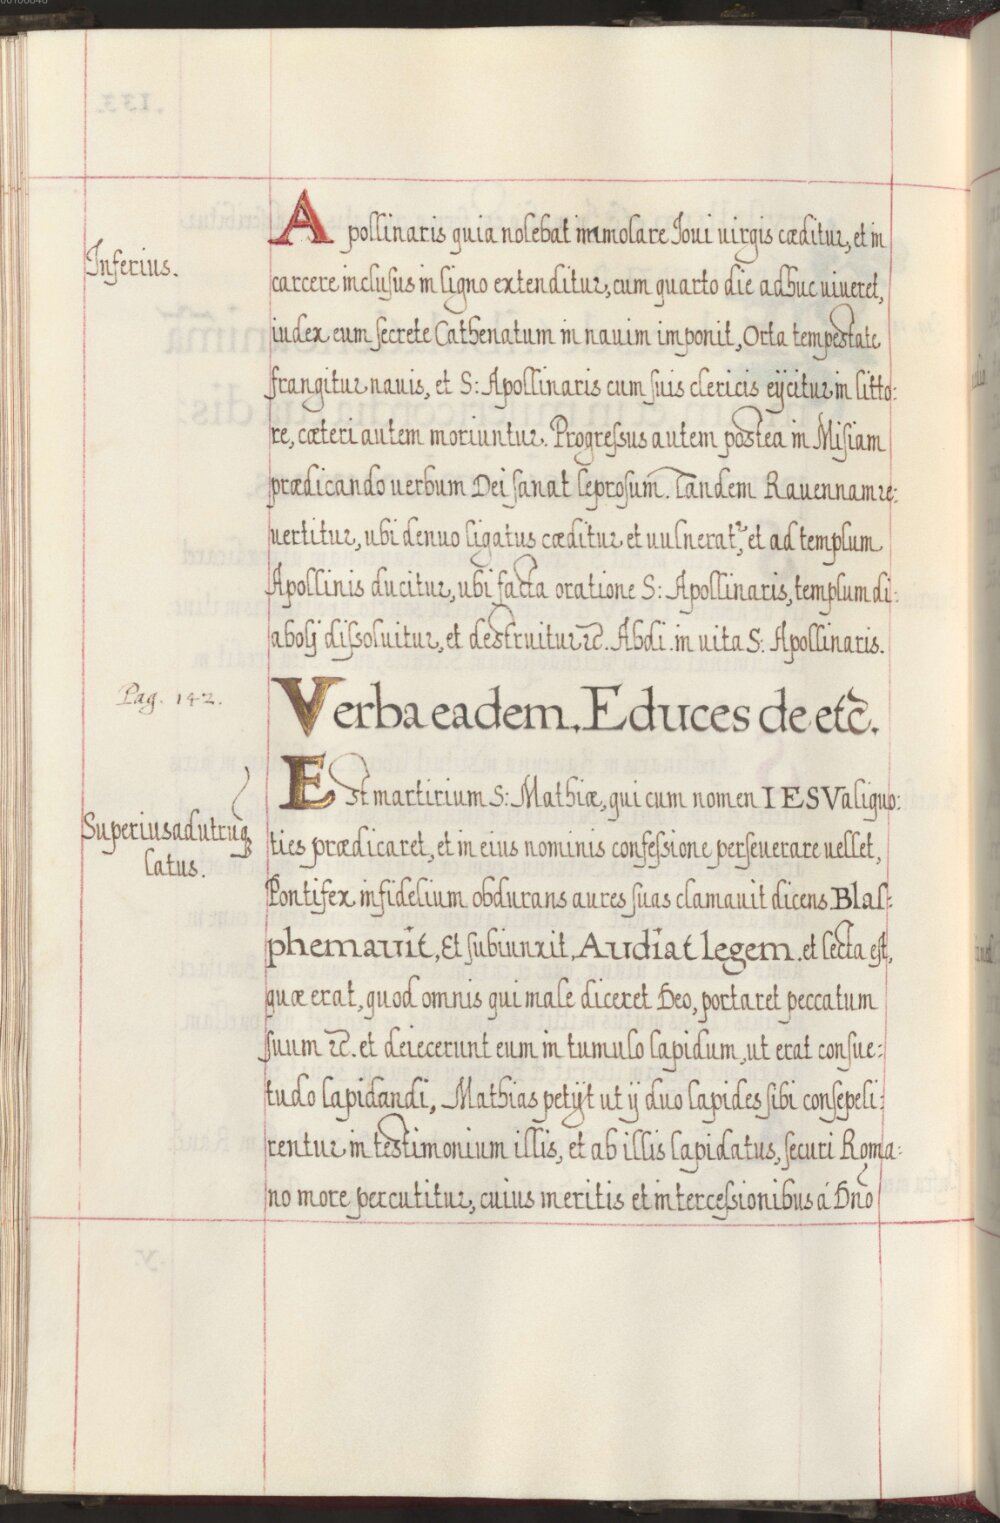 Inferius.
Apollinaris quia nolebat immolare Joui uirgis cæditur, et in
carcere inclusus in ligno extenditur, cum quarto die adhuc uiueret,
iudex eum secrete Cathenatum in nauim imponit, Orta tempestate
frangitur nauis, et S: Apollinaris cum suis clericis eÿcitur in litto:
re, cæteri autem moriuntur. Progressus autem postea in Misiam
prædicando uerbum Dei sanat leprosum. Tandem Rauennam re:
uertitur, ubi denuo ligatus cæditur et uulnerat^r, et ad templum
Apollinis ducitur, ubi facta oratione S: Apollinaris, templum di:
abolÿ dissoluitur, et destruitur &c. Abdi. in uita S: Apollinaris.
Pag. 142.
Verba eadem. Educes de etc̃.
Est martirium S: Mathiæ, qui cum nomen IESV aliquo:
Superius ad utrunq
latus.
ties prædicaret, et in eius nominis confessione perseuerare uellet,
Pontifex infidelium obdurans aures suas clamauit dicens. Blas:
phemauit, Et subiunxit, Audiat legem. et lecta est,
quæ erat, quod omnis qui male diceret Deo, portaret peccatum
suum &c. et deiecerunt eum in tumulo lapidum, ut erat consue:
tudo lapidandi, Mathias petÿt ut ÿ duo lapides sibi consepeli:
rentur in testimonium illis, et ab illis lapidatus, securi Roma:
no more percutitur, cuius meritis et intercessionibus á Dño